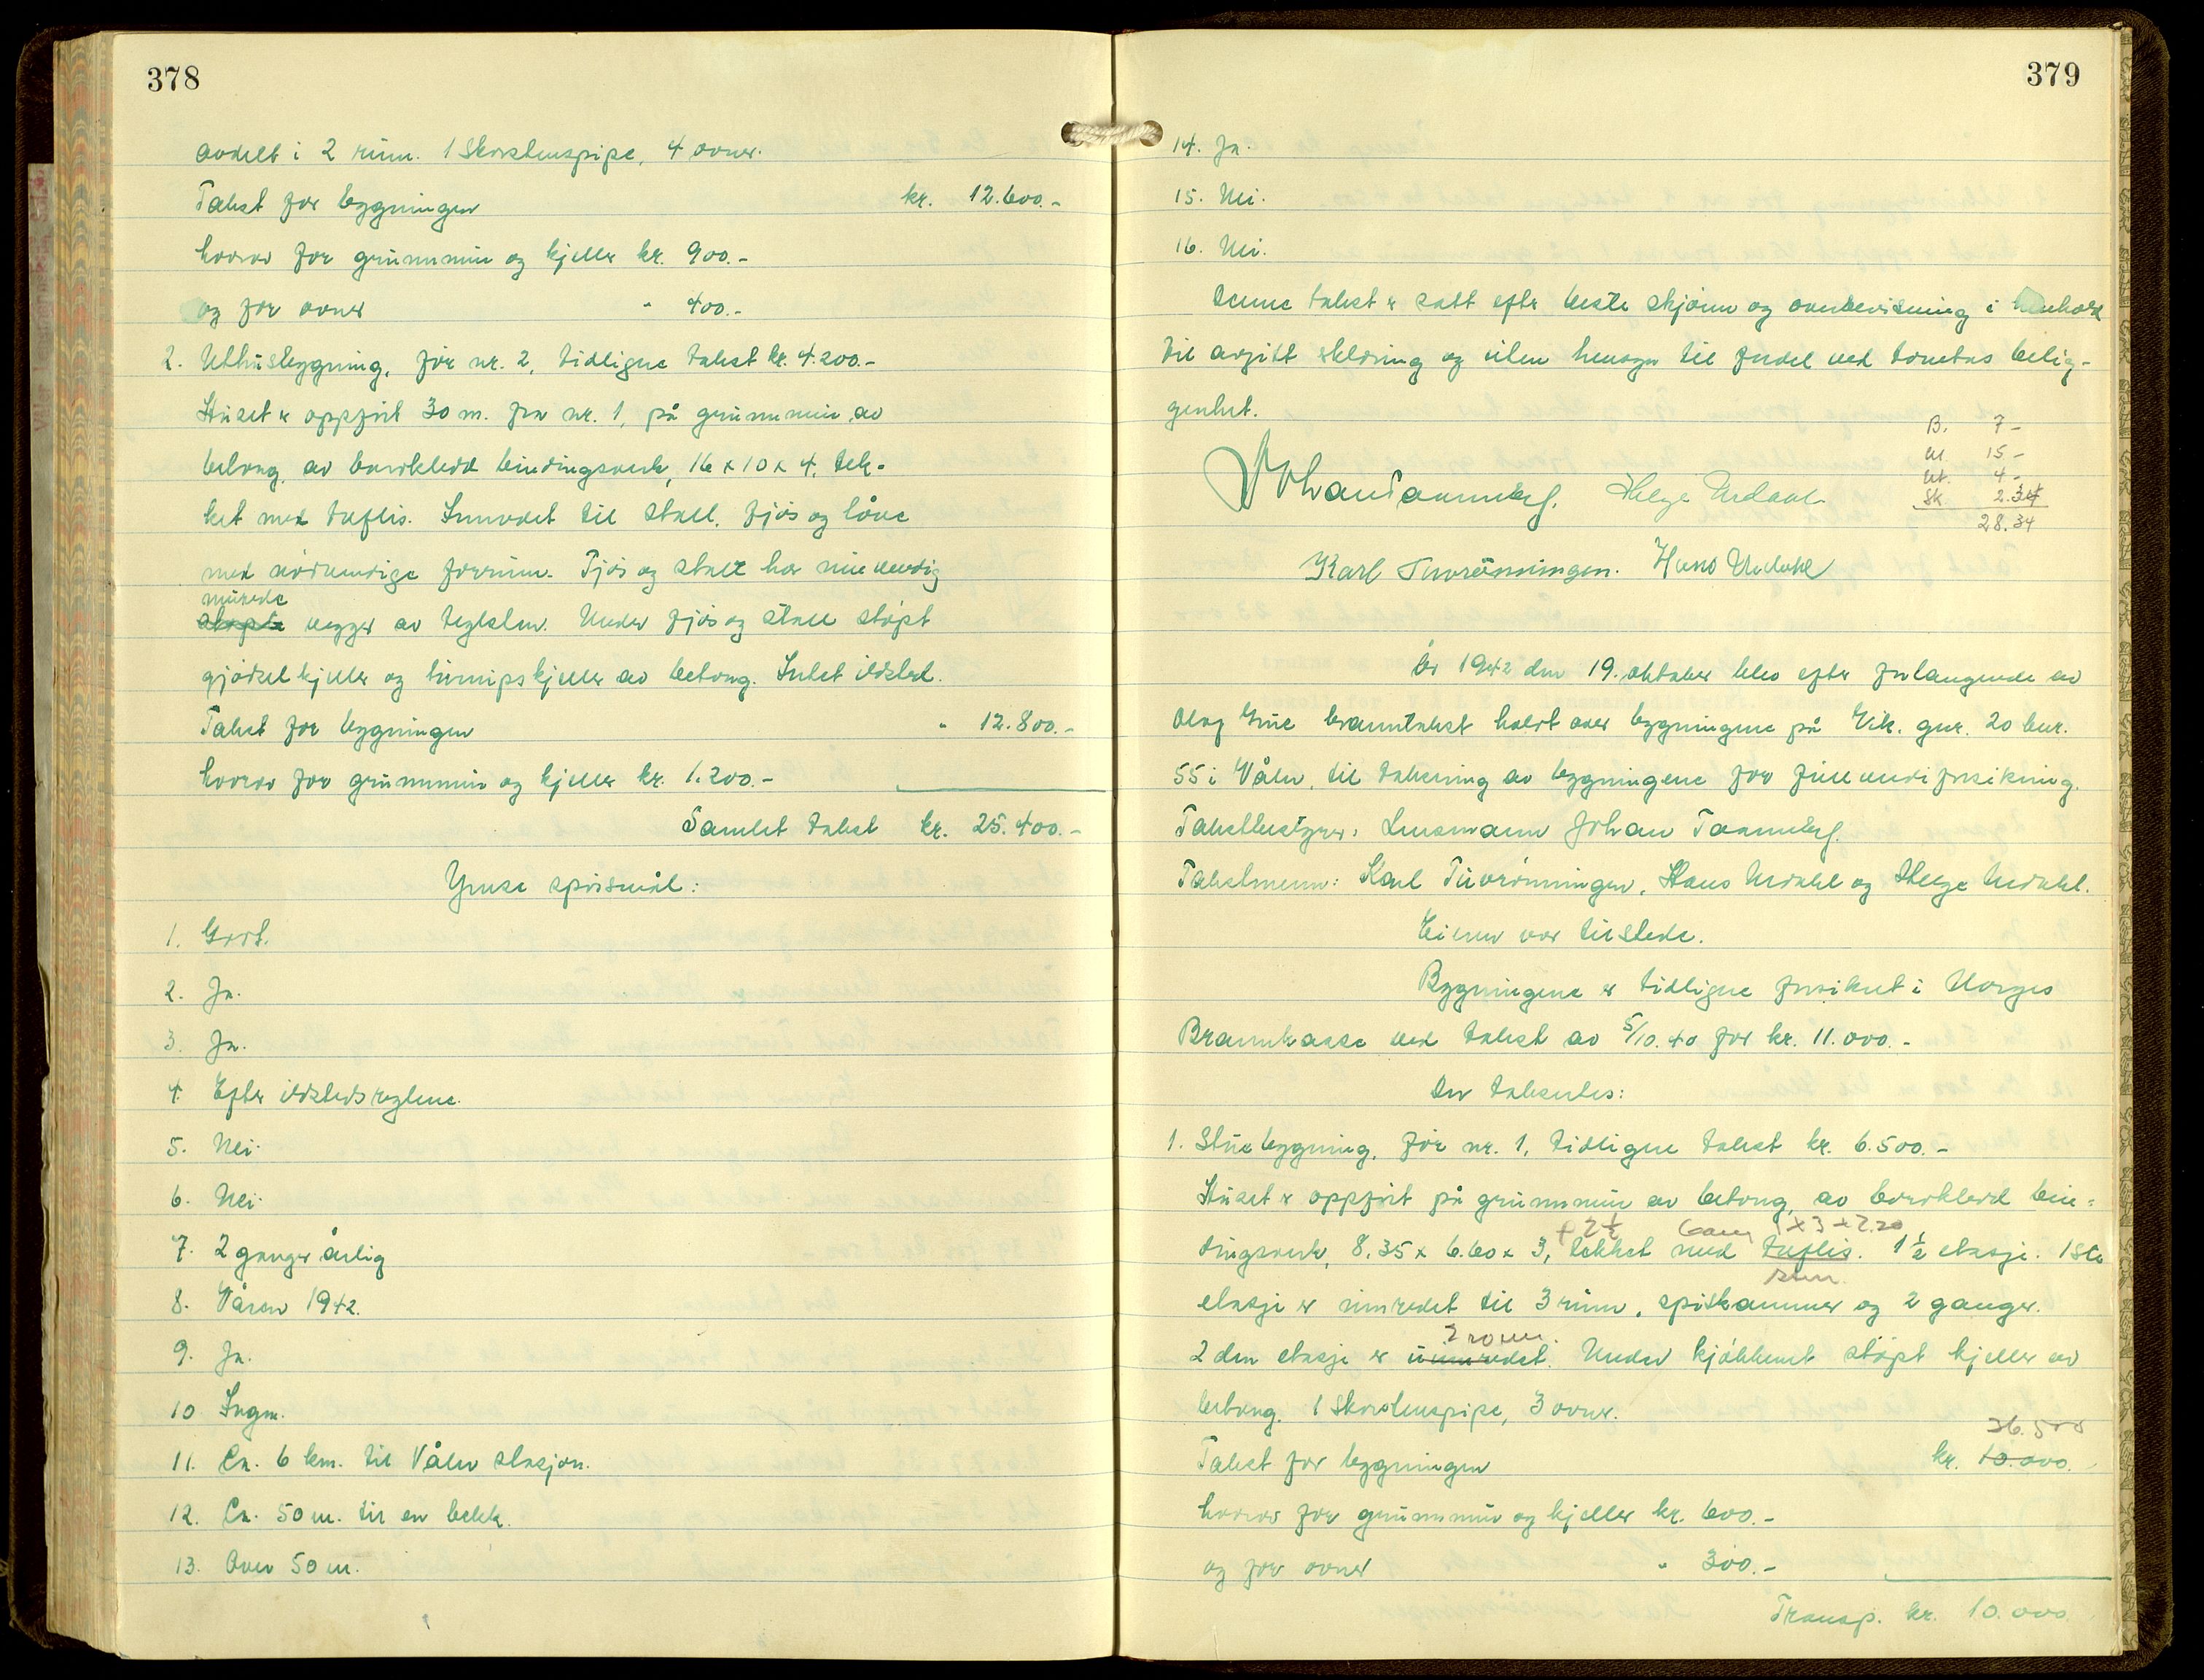 378
avdelt i 2 rum. 1 skorstenspipe, 4 ovner.
Takst for bygningen kr. 12.600.-
hvorav for grunnmur og kjeller kr. 900.-
og for ovner " 400.-
2. Uthusbygning, før nr. 2, tidligere takst kr. 4.200.-
Huset er oppført 30 m. fra nr. 1, på grunnmur av
betong, av bordkledd bindingsverk, 16 x 10 x 4, tek-
ket med tuflis. Innredet til stall, fjøs og låve
med nødvendige forrum. Fjøs og stall har innvendig
murede
støpte vegger av teglsten. Under fjøs og stall støpt
gjødselkjeller og turnipskjeller av betong. Intet ildsted.
Takst for bygningen " 12.800.-
hvorav for grunnmur og kjeller kr. 1.200.-
Samlet takst kr. 25.400.-
Ymse spørsmål:
1. Godt.
2. Ja.
3. Ja.
4. Efter ildstedsreglene.
5. Nei.
6. Nei.
7. 2 ganger årlig
8. Våren 1942.
9. Ja.
10 Ingen.
11. Ca. 6 km. til Våler stasjon.
12. Ca. 50 m. til en bekk.
13. Over 50 m.
379
14. Ja.
15. Nei.
16. Nei.
Denne takst er satt efter beste skjønn og overbevisning i henhold
til avgitt erklæring og uten hensyn til fordel ved tomtens belig-
genhet.
B. 7-
M. 15-
Ut. 4-
Sk 2.34
28.34
Johan Tannæs. Helge Urdahl
Karl Turrønningen. Hans Urdahl
År 1942 den 19. oktober blev efter forlangende av
Olaf branntakst holdt over bygningene på Vik, gnr. 20 bnr.
55 i Våler, til taksering av bygningene for full verdi forsikring.
Takstbestyrer: Lensmann Johan
Takstmenn: Karl Turrønningen, Hans Urdahl og Helge Urdahl.
Eieren var tilstede.
Bygningene er tidligere forsikret i Norges
Brannkasse ved takst av 5/10.40 for kr. 11.000.-
Der takseredes:
1. Stuebygning, før nr. 1, tidligere takst kr. 6.500.-
Huset er oppført på grunnmur av betong, av bordkledd bin-
+ 2½ x 3 x 2.20
dingsverk, 8.35 x 6.60 x 3, tekket med tuflis. 1½ etasje. 1ste
sten
etasje er innredet til 3 rum, spiskammer og 2 ganger.
2 rom.
2 den etasje er uinnredet. Under kjøkkenet støpt kjeller av
betong. 1 skorstenspipe, 3 ovner.
26.500
Takst for bygningen kr. 10.000.
hvorav for grunnmur og kjeller kr. 600.-
og for ovner " 300.-
Transp. kr. 10.000.